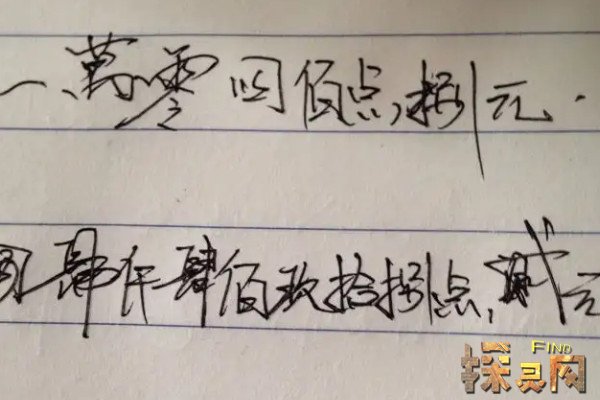 一、萬零四佰点,捌元.
肆仟肆佰玖拾捌点,贰元
FIND
探灵网